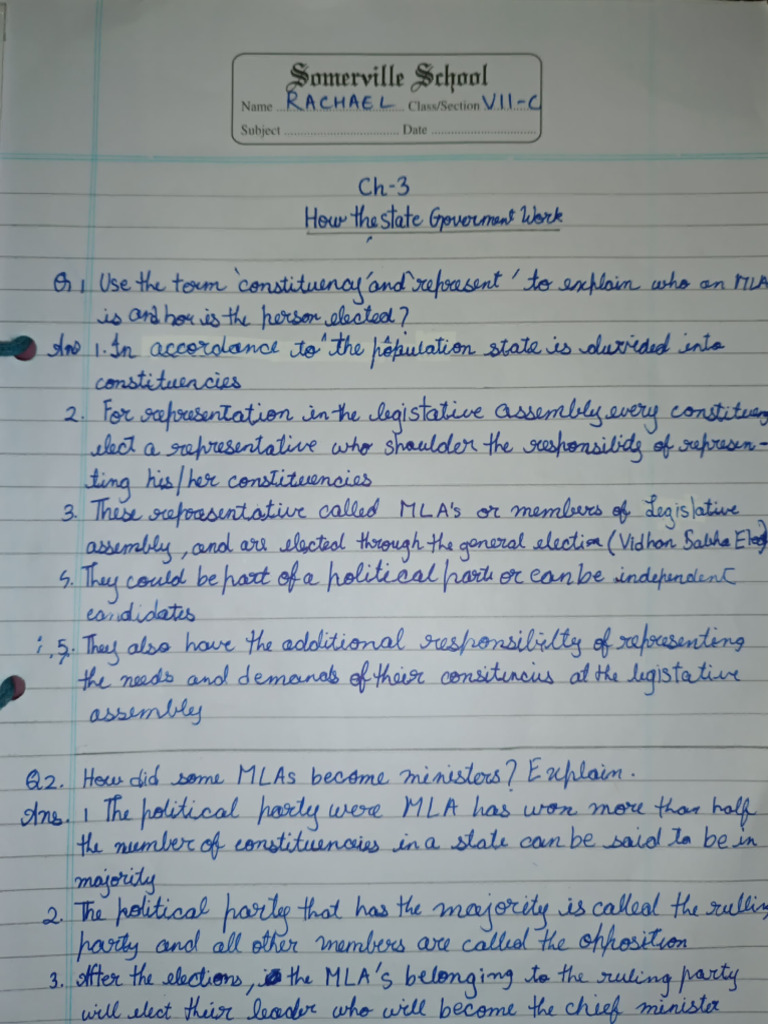 Somerville School
Name RACHAEL Class/Section VII-C
Subject Date
Ch-3
How the state Goverment Work
Q 1 Use the term 'constituency' and 'represent' to explain who an MLA
is and how is the person elected?
Ans 1. In accordance to the population state is divided into
constituencies
2. For representation in the legistative assembly every constituency
elect a representative who shoulder the responsibility of represen-
ting his/her constituencies
3. These representative called MLA's or members of Legislative
assembly, and are elected through the general election (Vidhan Sabha
5. They could be part of a political party or can be independent
candidates
5. They also have the additional responsibility of representing
the needs and demands of their consitencies at the legistative
assembly
Q2. How did some MLAs become ministers? Explain.
Ans. 1 The political party were MLA has won more than half
the number of constituencies in a state can be said to be in
majority
2. The political party that has the majority is called the rulling
party and all other members are called the opposition
3. After the elections, the MLA's belonging to the ruling party
will elect their leader who will become the chief minister